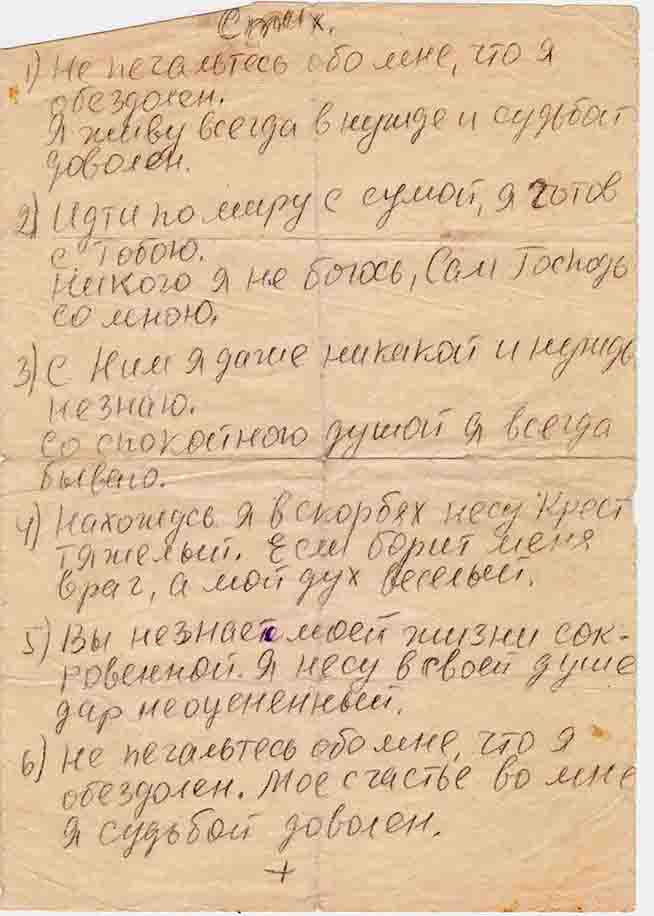 Стих.
1) Не печальтесь обо мне, что я
обездолен.
Я живу всегда в нужде и судьбой
доволен.
2) Идти по миру с сумой, я готов
с Тобою.
Никого я не боюсь, Сам Господь
со мною.
3) С Ним я даже никакой и нужды
незнаю.
Со спокойною душой я всегда
бываю.
4) Нахожусь я в скорбях несу Крест
тяжелый. Если борит меня
враг, а мой дух веселый.
5) Вы незнаете моей жизни сок-
ровенной. Я несу в своей душе
дар неоцененный.
6) Не печальтесь обо мне, что я
обездолен. Мое счастье во мне
я судьбой доволен.
+